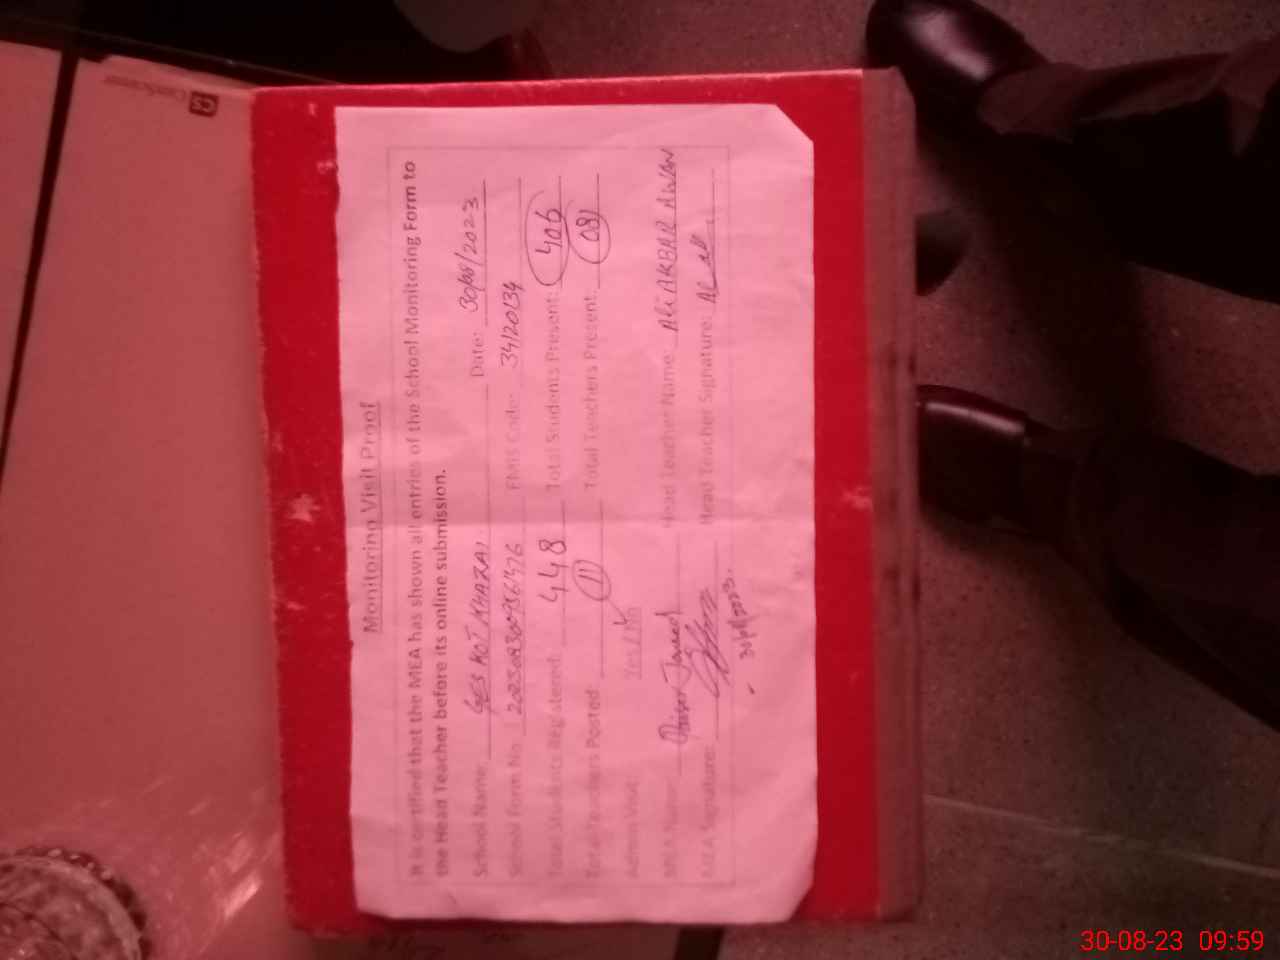 Monitoring Visit Proof
It is certified that the MEA has shown all entries of the School Monitoring Form to
the Head Teacher before its online submission.
School Name: GES KOT KHAZAI Date: 30/08/2023
School Form No. EMIS Code: 34120134
Total Students Registered: 448 Total Students Present: 406
Total Teachers Posted: 11 Total Teachers Present: 08
Admin Visit: Yes / No
MEA Name: Head Teacher Name: Ali AKBAR AWAN
MEA Signature: Head Teacher Signature:
30/08/2023.
CS CamScanner
30-08-23 09:59